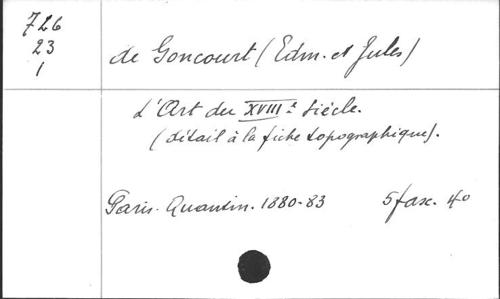 726
23
1
de Goncourt (Edm. et Jules)
L'Art du XVIIIe Siècle.
(détail à la fiche topographique).
Paris. Quantin. 1880-83 5 fasc. 4o